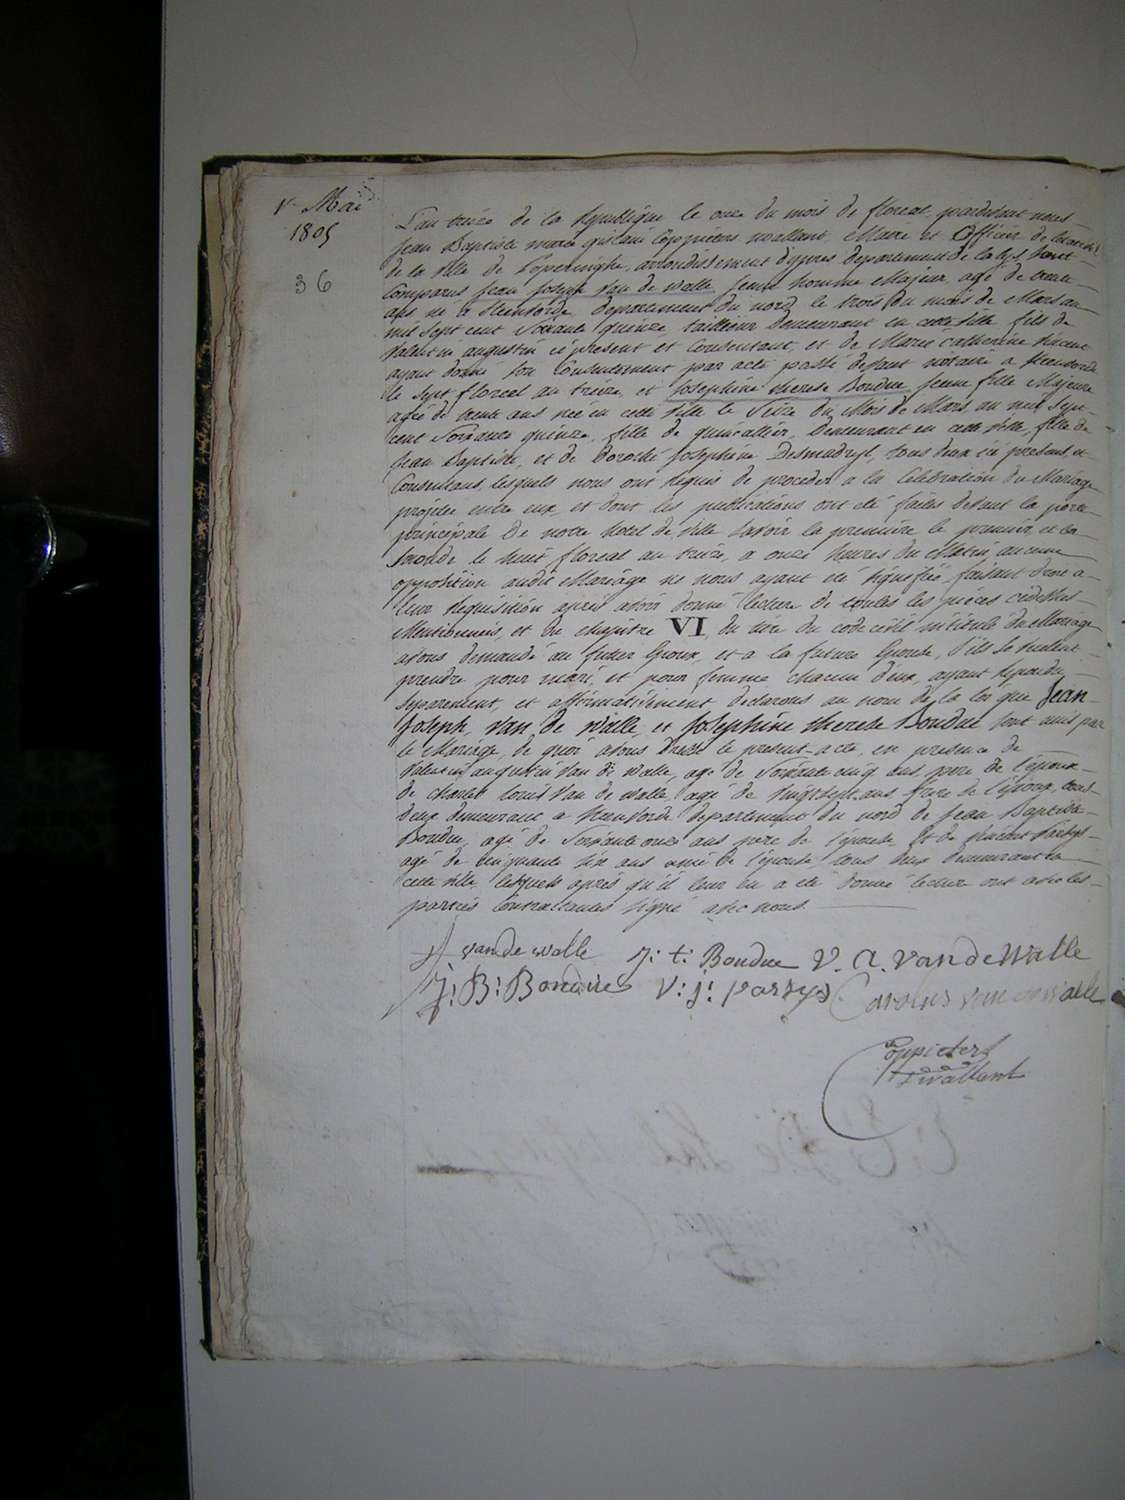 1r Mai
1805
36
L'an treize de la republique le onze du mois de floreal, pardevant nous
Jean Baptiste marie guislain Coppieters wallant, Maire et Officier de l'état civil
de la ville de Poperinghe, arrondissement d'ypres departement de la lys sont
Comparus Jean Joseph Van de walle, Jeune homme Majeur, agé de trente
ans né a Steenvorde, departement du nord le trois du mois de Mars an
mil sept cent Soixante quinze, tailleur Demeurant en cette ville fils de
Valentin augustin ci present et Consentant, et de Marie Catherine
ayant donné son Consentement par acte passé devant notaire a Steenvorde
le Sept floreal an treize, et Josephine therese Boudue jeune fille Majeure
agée de trente ans née en cette ville le Seize du Mois de Mars, an mil sept
cent Soixante quinze, fille de quincallier, Demeurant en cette ville, fille de
Jean Baptiste, et de Dorothé Josephine Desmadryl, tous deux ici présent et
Consentans, lesquels nous ont requis de proceder a la Celebration du Mariage
projetée entre eux, et dont les publications ont été faites devant la porte
principale de notre hotel de ville savoir la premiere le premier, et la
seconde le huit floreal an treize, a onze heures du Matin, aucune
opposition audit Mariage ne nous ayant été signifiée, faisant droit a
leur requisition après avoir donné lecture de toutes les pièces cidessus
Mentionnées, et du chapitre VI, du titre du code civil intitulé du Mariage
avons demandé au futur Epoux, et a la future Epouse, s'ils se veulent
prendre pour mari, et pour femme chacun d'eux, ayant repondu
separement, et affirmativement declarons au nom de la loi que Jean
Joseph, Van de Walle, et Josephine therese Boudue sont unis par
le Mariage, de quoi avons dressé le present acte, en presence de
Valentin augustin Van de walle, agé de Soixante cinq ans, père de l'époux
de Charles Louis Van de walle, agé de vingt sept ans frere de l'époux, tous
deux demeurant a Steenvorde departement du nord de Jean Baptiste
Boudue, agé de Soixante onze ans père de l'épouse, et de
agé de Cinquante six ans ami de l'épouse tous deux Demeurant en
cette ville, lesquels après qu'il leur en a été donné lecture ont avec les
parties Contractantes signé avec nous.
JJ vande walle J: t: Boudue V. A. vandeWalle
J: B: Boudue V: j: parrys Carolus van de walle
Coppieters
wallant